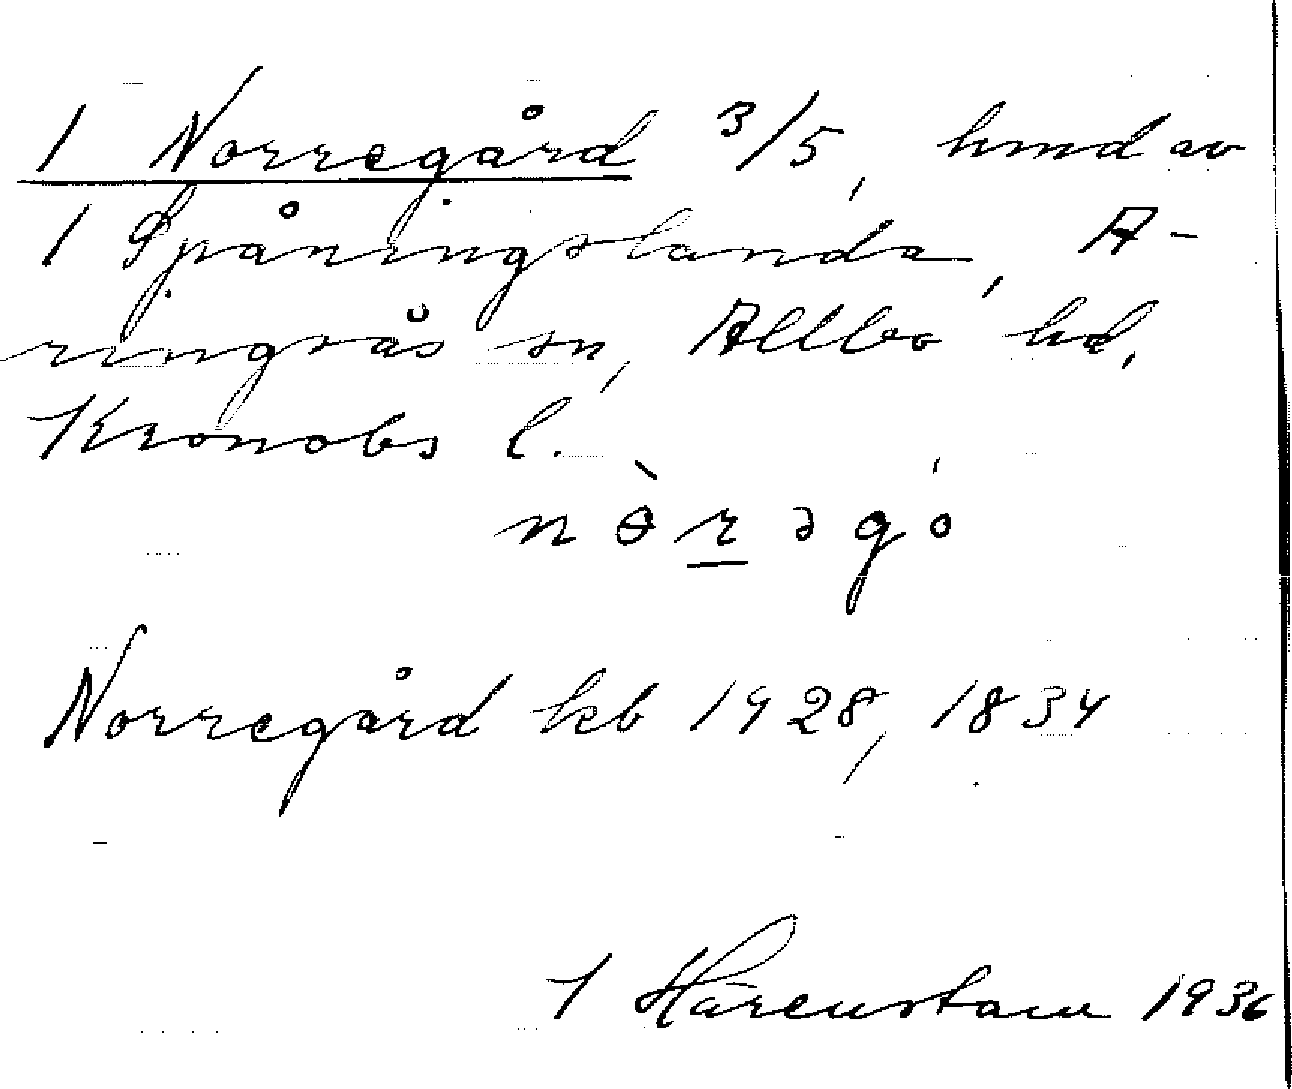 1 Norregård 3/5, hmd av
1 Spåningslanda, A-
ringsås sn, Allbo hd,
Kronobs l.
nɵ̀rəgó
Norregård kb 1928, 1834
J Härenstam 1936